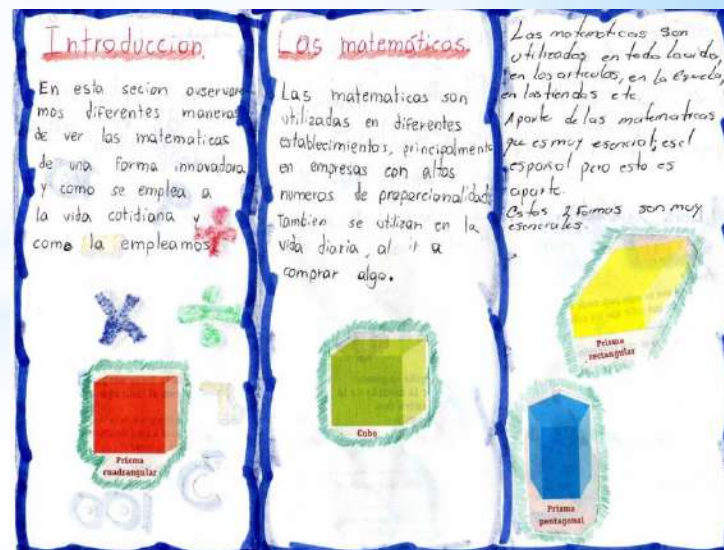 Introduccion.
En esta secion observare
mos diferentes maneras
de ver las matematicas
de una forma innovadora
y como se emplea a
la vida cotidiana y
como la empleamos
Prisma
cuadrangular
Las matemáticas.
Las matematicas son
utilizadas en diferentes
establecimientos, principalmente
en empresas con altos
numeros de proporcionalidad
Tambien se utilizan en la
vida diaria, al ir a
comprar algo.
Cubo
Las matematicas son
utilizadas en toda la vida,
en los articulos, en la escuela,
en las tiendas etc.
Aparte de las matematicas
que es muy esencial; es el
español pero esto es
aparte.
Estas 2 formas son muy
esenciales.
Prisma
rectangular
Prisma
pentagonal